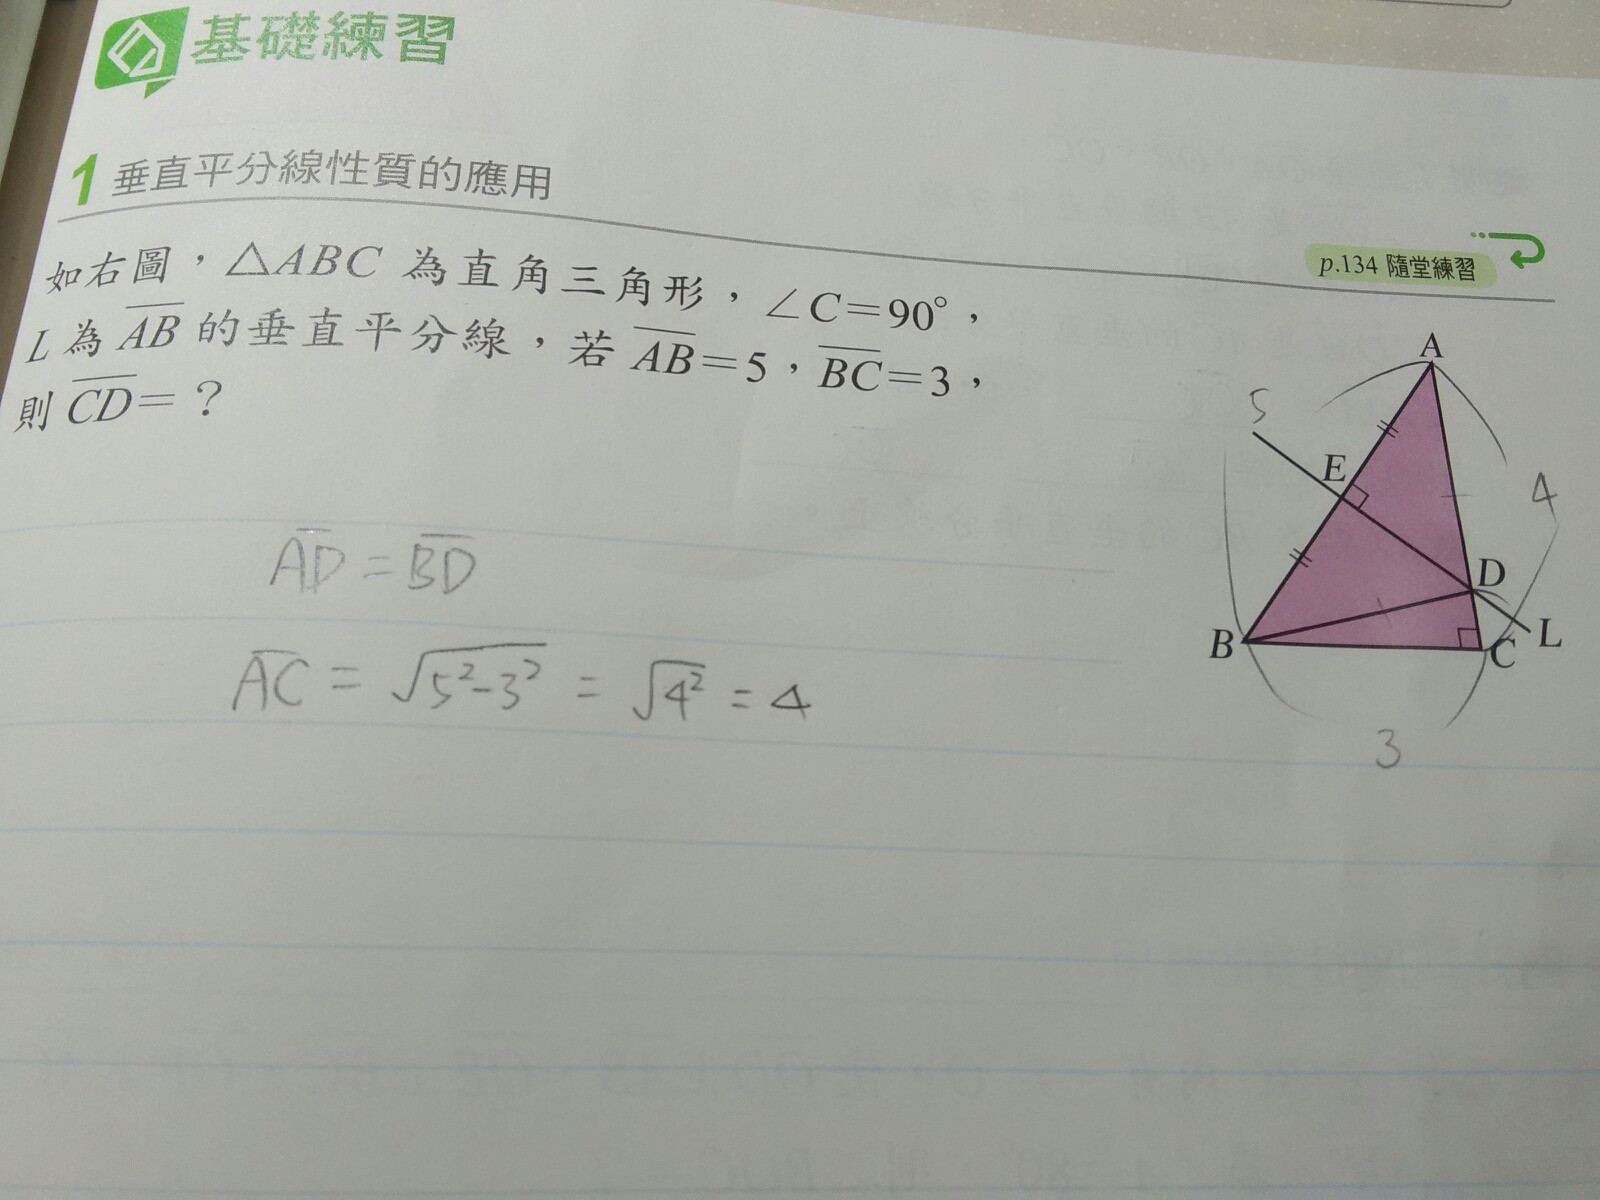 基礎練習
1 垂直平分線性質的應用
p.134 隨堂練習
如右圖，△ABC 為直角三角形，∠C=90°，
L 為 AB 的垂直平分線，若 AB=5，BC=3，
則 CD=？
A
5
E
4
D
B
C
L
3
AD = BD
AC = √5²-3² = √4² = 4